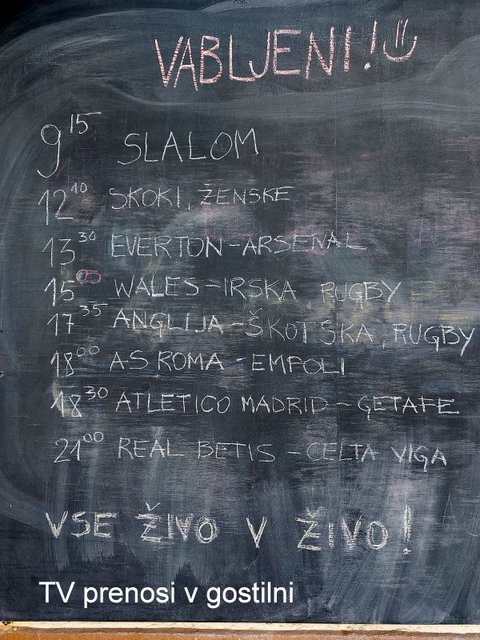 VABLJENI!
9 15 SLALOM
12 10 SKOKI, ŽENSKE
13 30 EVERTON - ARSENAL
15 05 WALES - IRSKA, RUGBY
17 35 ANGLIJA - ŠKOTSKA, RUGBY
18 00 AS ROMA - EMPOLI
18 30 ATLETICO MADRID - GETAFE
21 00 REAL BETIS - CELTA VIGA
VSE ŽIVO V ŽIVO!
TV prenosi v gostilni